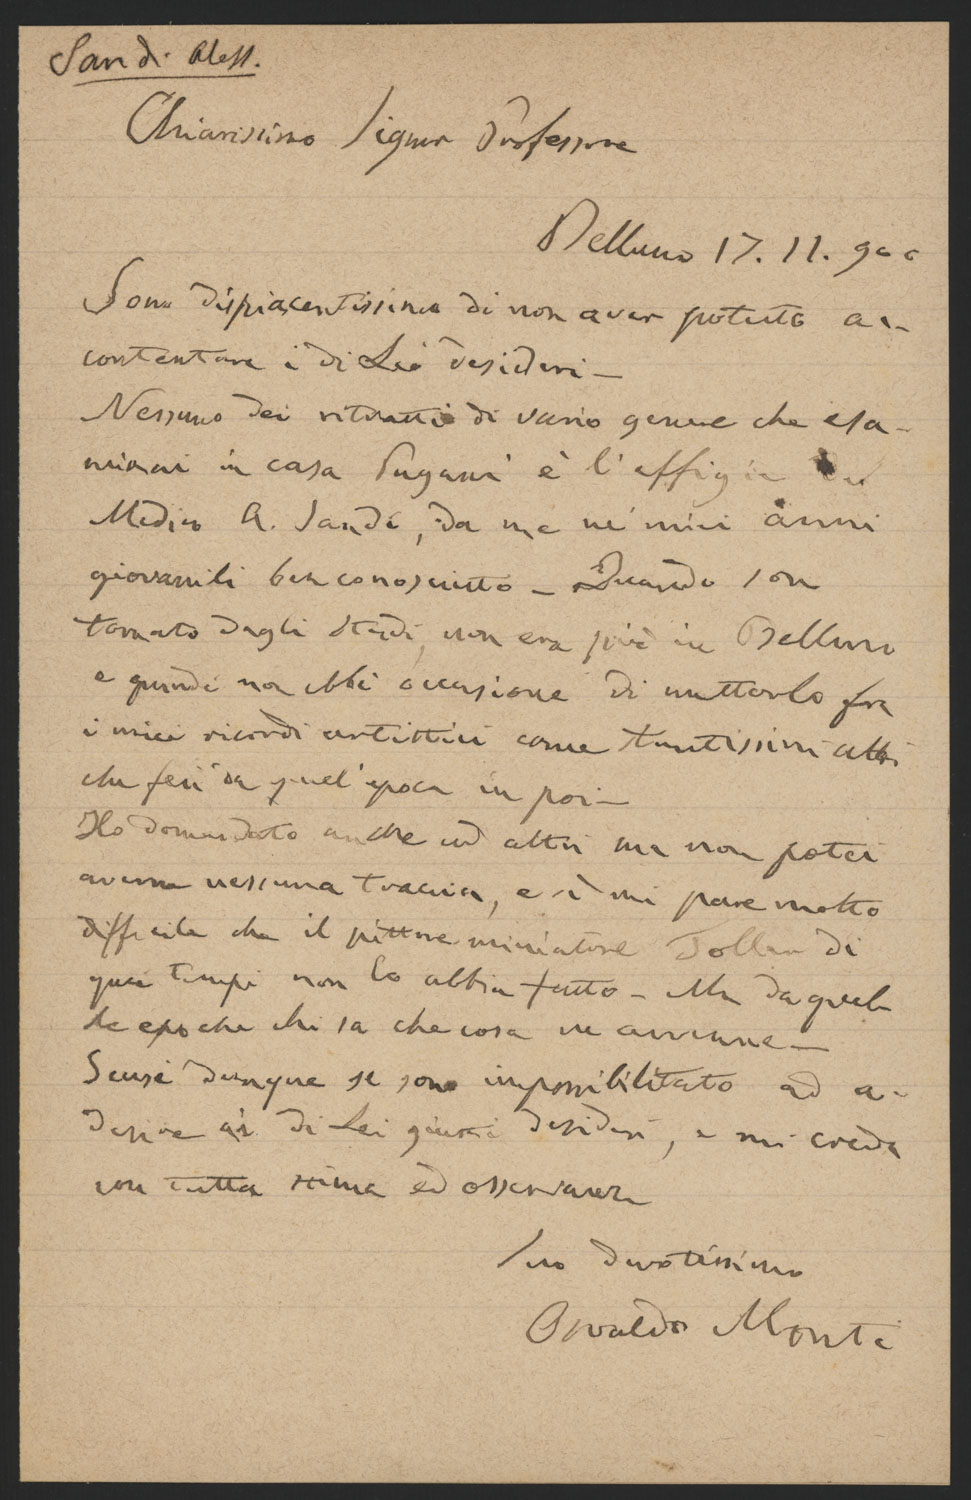 Sandi Aless.
Chiarissimo Signor Professore
Belluno 17. 11. 900
Sono dispiacentissimo di non aver potuto ac-
contentare i di Lei desideri —
Nessuno dei ritratti di vario genere che esa-
minai in casa Pagani è l'effigie del
Medico A. Sandi, da me ne' miei anni
giovanili ben conosciuto — Quando son
tornato dagli studi, non era più in Belluno
e quindi non ebbi occasione di metterlo fra
i miei ricordi artistici come tantissimi altri
che feci da quell'epoca in poi —
Ho domandato anche ad altri ma non potei
averne nessuna traccia, e sì mi pare molto
difficile che il pittore miniatore di
quei tempi non lo abbia fatto — Ma da quel-
le epoche chi sa che cosa ne avvenne —
Scusi dunque se sono impossibilitato ad a-
derire ai di Lei giusti desideri, e mi creda
con tutta stima ed osservanza
Suo devotissimo
Osvaldo Monti